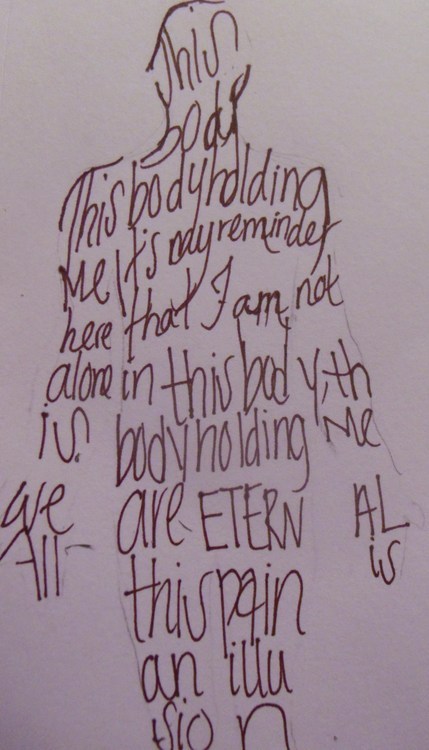 This
body
This body holding
Me It's my reminder
here that I am not
alone in this body, th
is body holding Me
We are ETERN AL
All is
this pain
an illu
sion